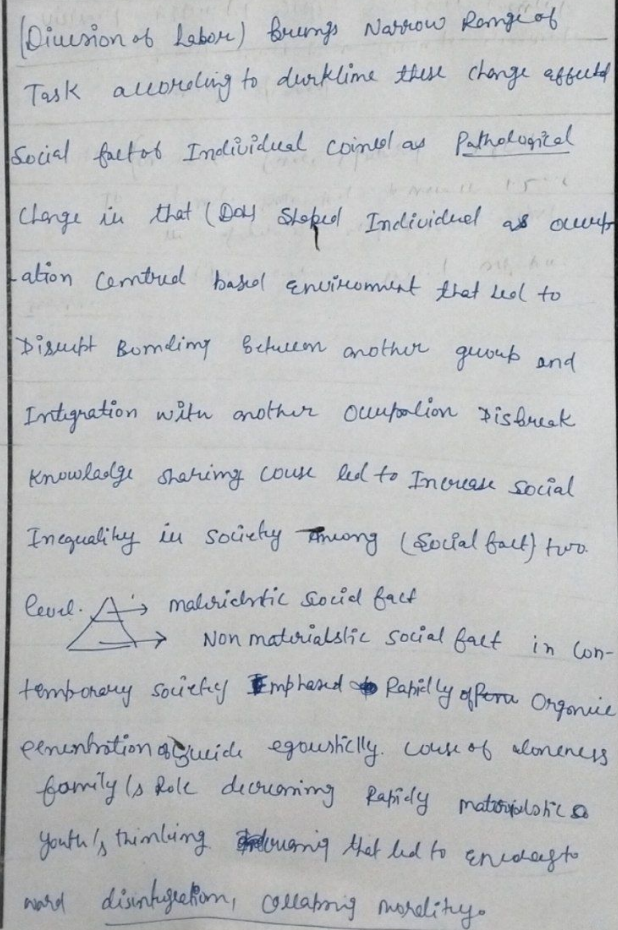 (Division of Labor) Brings Narrow Range of
Task according to durklime these change affected
Social fact of Individual coined as Pathological
change in that (DoL) shaped Individual as occup
-ation Centred based Enviroment that led to
Disrupt Bonding between another group and
Integration with another Occupation Disbreak
Knowladge sharing couse led to Increase social
Inequality in society Among (Social fact) two
level. → materialstic social fact
→ Non materialstic social fact in Con-
temporary society Emphased Rapidly Organic
egoustically. couse of aloneness
family's Role decreasing Rapidy
youth's thinking that led to
ward disintigration, collapsing morality.